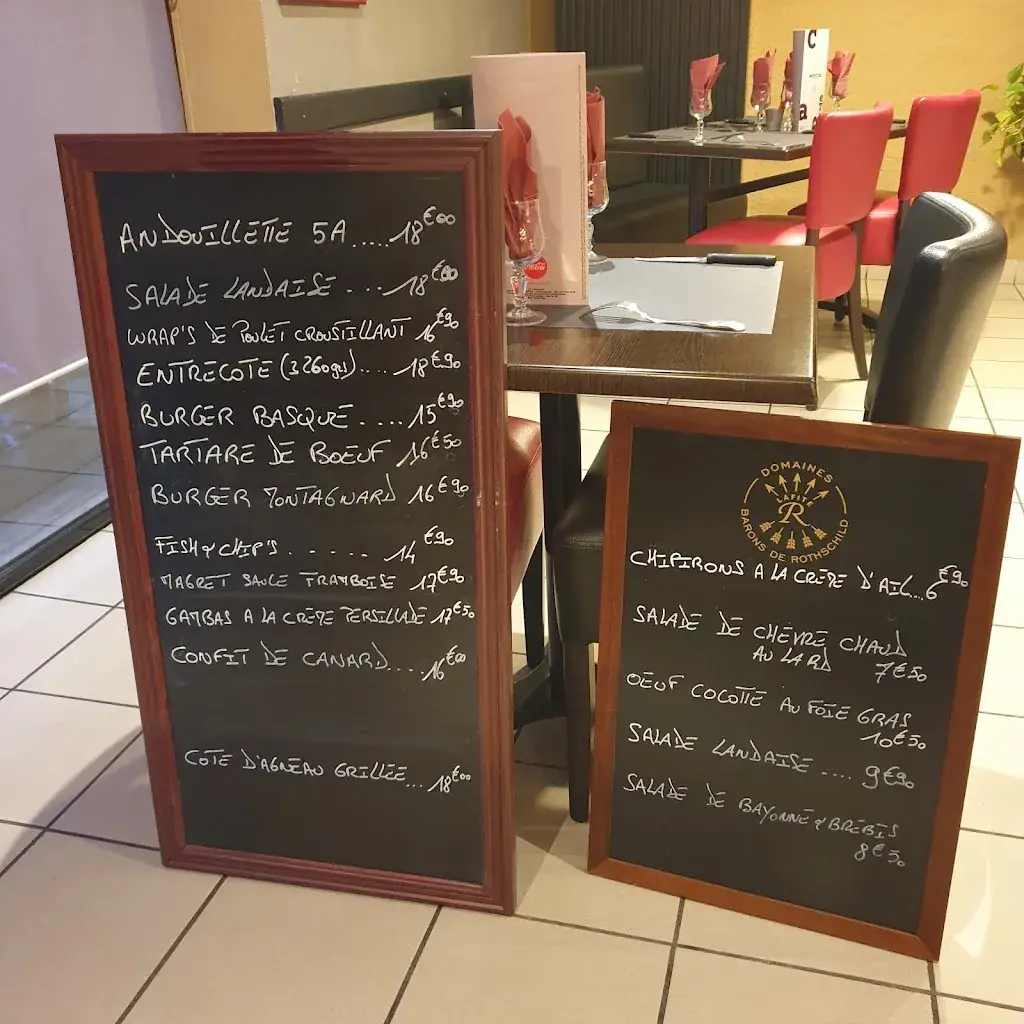 ANDOUILLETTE 5A.....18€00
SALADE LANDAISE....18€00
WRAP'S DE POULET CROUSTILLANT 16€90
ENTRECOTE (± 260gr)....18€90
BURGER BASQUE.....15€90
TARTARE DE BOEUF 16€50
BURGER MONTAGNARD 16€90
FISH & CHIP'S......14€90
MAGRET SAUCE FRAMBOISE 17€90
GAMBAS A LA CRÈME PERSILLADE 17€50
CONFIT DE CANARD....16€00
COTE D'AGNEAU GRILLÉE...18€00
DOMAINES
LAFITE
R
BARONS DE ROTHSCHILD
CHIPIRONS A LA CRÈME D'AIL...6€90
SALADE DE CHÈVRE CHAUD
AU LARD
7€50
OEUF COCOTTE AU FOIE GRAS
10€50
SALADE LANDAISE.... 9€90
SALADE DE BAYONNE & BREBIS
8€50